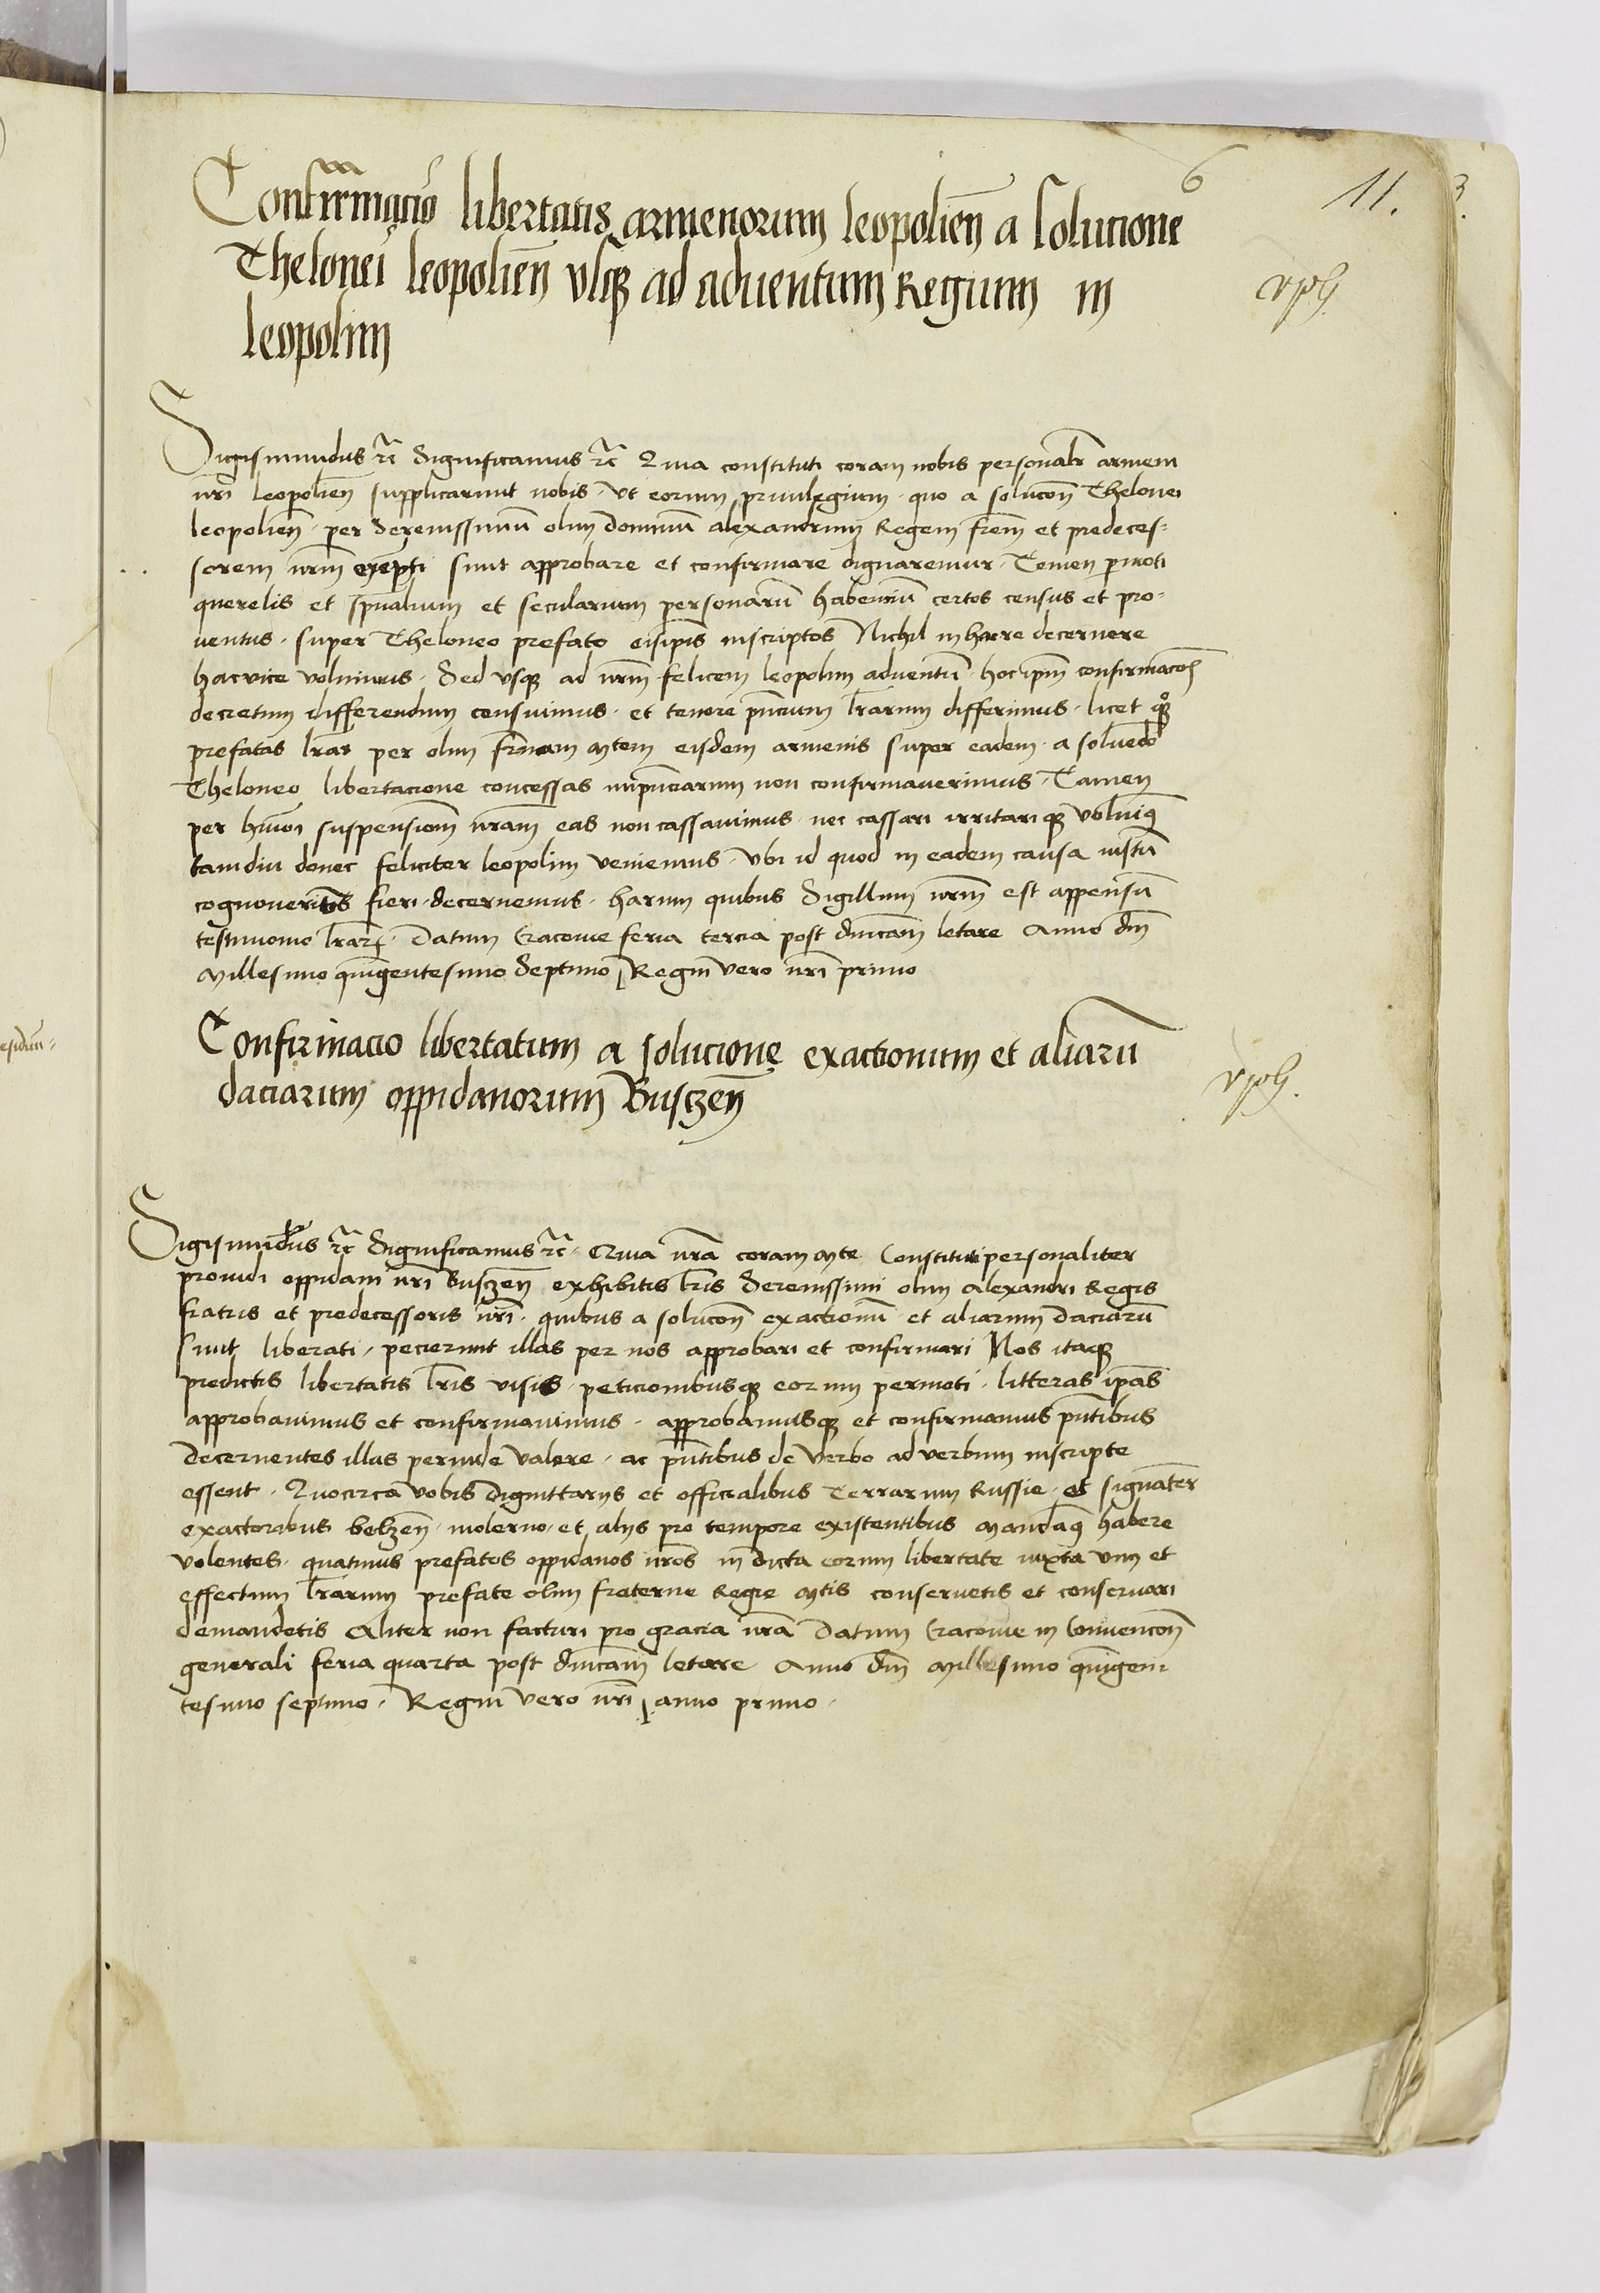 6
11.
3.
Confirmacio libertatis armenorum leopolien̄ a solucione
Thelonei leopolien̄ vsq3 ad aduentum Regium in
leopolim
Sigismundus rc̄ Significamus rc̄ Quia constituti coram nobis personalr̄ armeni
nri̅ leopolien̄ supplicarunt nobis. vt eorum priuilegium. quo a solucōn Thelonei
leopolien̄. per Serenissimū olim dominū alexandrum Regem frēm et predeces⸗
sorem nrm̄ exempti sunt approbare et confirmare dignaremur. Tamen permoti
querelis et spūalium et secularium personarū habenciū certos census et pro⸗
uentus. super Theloneo prefato eisipīs inscriptos Nichil in hac re decernere
hac vice voluimus. Sed vsq3 ad nrm̄ felicem leopolim aduentū. hoc ipm̄ confirmacōs
decretum differendum censuimus. et tenore pn̄cium lrārum differimus. licet
prefatas lrās per olim frn̄am Mtem eisdem armenis super eadem. a soluendo
Theloneo libertacione concessas inpn̄ciarum non confirmauerimus. Tamen
per hmōi suspensionem nrām eas non cassauimus. nec cassari irritariq3 volumus
tamdiu donec feliciter leopolim veniemus. vbi id quod in eadem causa iustū
fieri. decernemus. harum quibus Sigillum nrm̄ est appensū
testimonio lrārum. Datum Cracouie feria tercia post dn̄icam letare Anno dn̄i
Millesimo quingentesimo Septimo Regni vero nri̅ primo
Confirmacio libertatum a solucione exactionum et aliarū
daciarum oppidanorum Busczen̄
Sigismundus rc̄ Significamus rc̄. Quia nrā coram Mte Constituti personaliter
prouidi oppidani nri̅ Busczen̄ exhibitis lrīs Serenissimi olim Alexandri Regis
fratris et predecessoris nri̅. quibus a solucōn exactionū et aliarum daciarū
sunt liberati. pecierunt illas per nos approbari et confirmari Nos itaq3
predictis libertatis lrīs visis. peticionibusq3 eorum permoti. litteras ipās
approbauimus et confirmauimus. approbamusq3 et confirmamus pn̄tibus
Decernentes illas perinde valere. ac pn̄tibus de verbo ad verbum inscripte
essent. Quocirca vobis dignittarys et officialibus Terrarum Russie. et signanter
exactoribus belzen̄. moderno. et alys pro tempore existentibus Mandamus habere
volentes. quatinus prefatos oppidanos nrōs in dicta eorum libertate iuxta vim et
effectum lrārum prefate olim fraterne Regie Mtis conseruetis et conseruari
demandetis Aliter non facturi pro gracia nrā Datum Cracouie in Conuencōn
generali feria quarta post dn̄icam letare Anno dn̄i Millesimo quingen
tesimo septimo. Regni vero nri̅ anno primo.